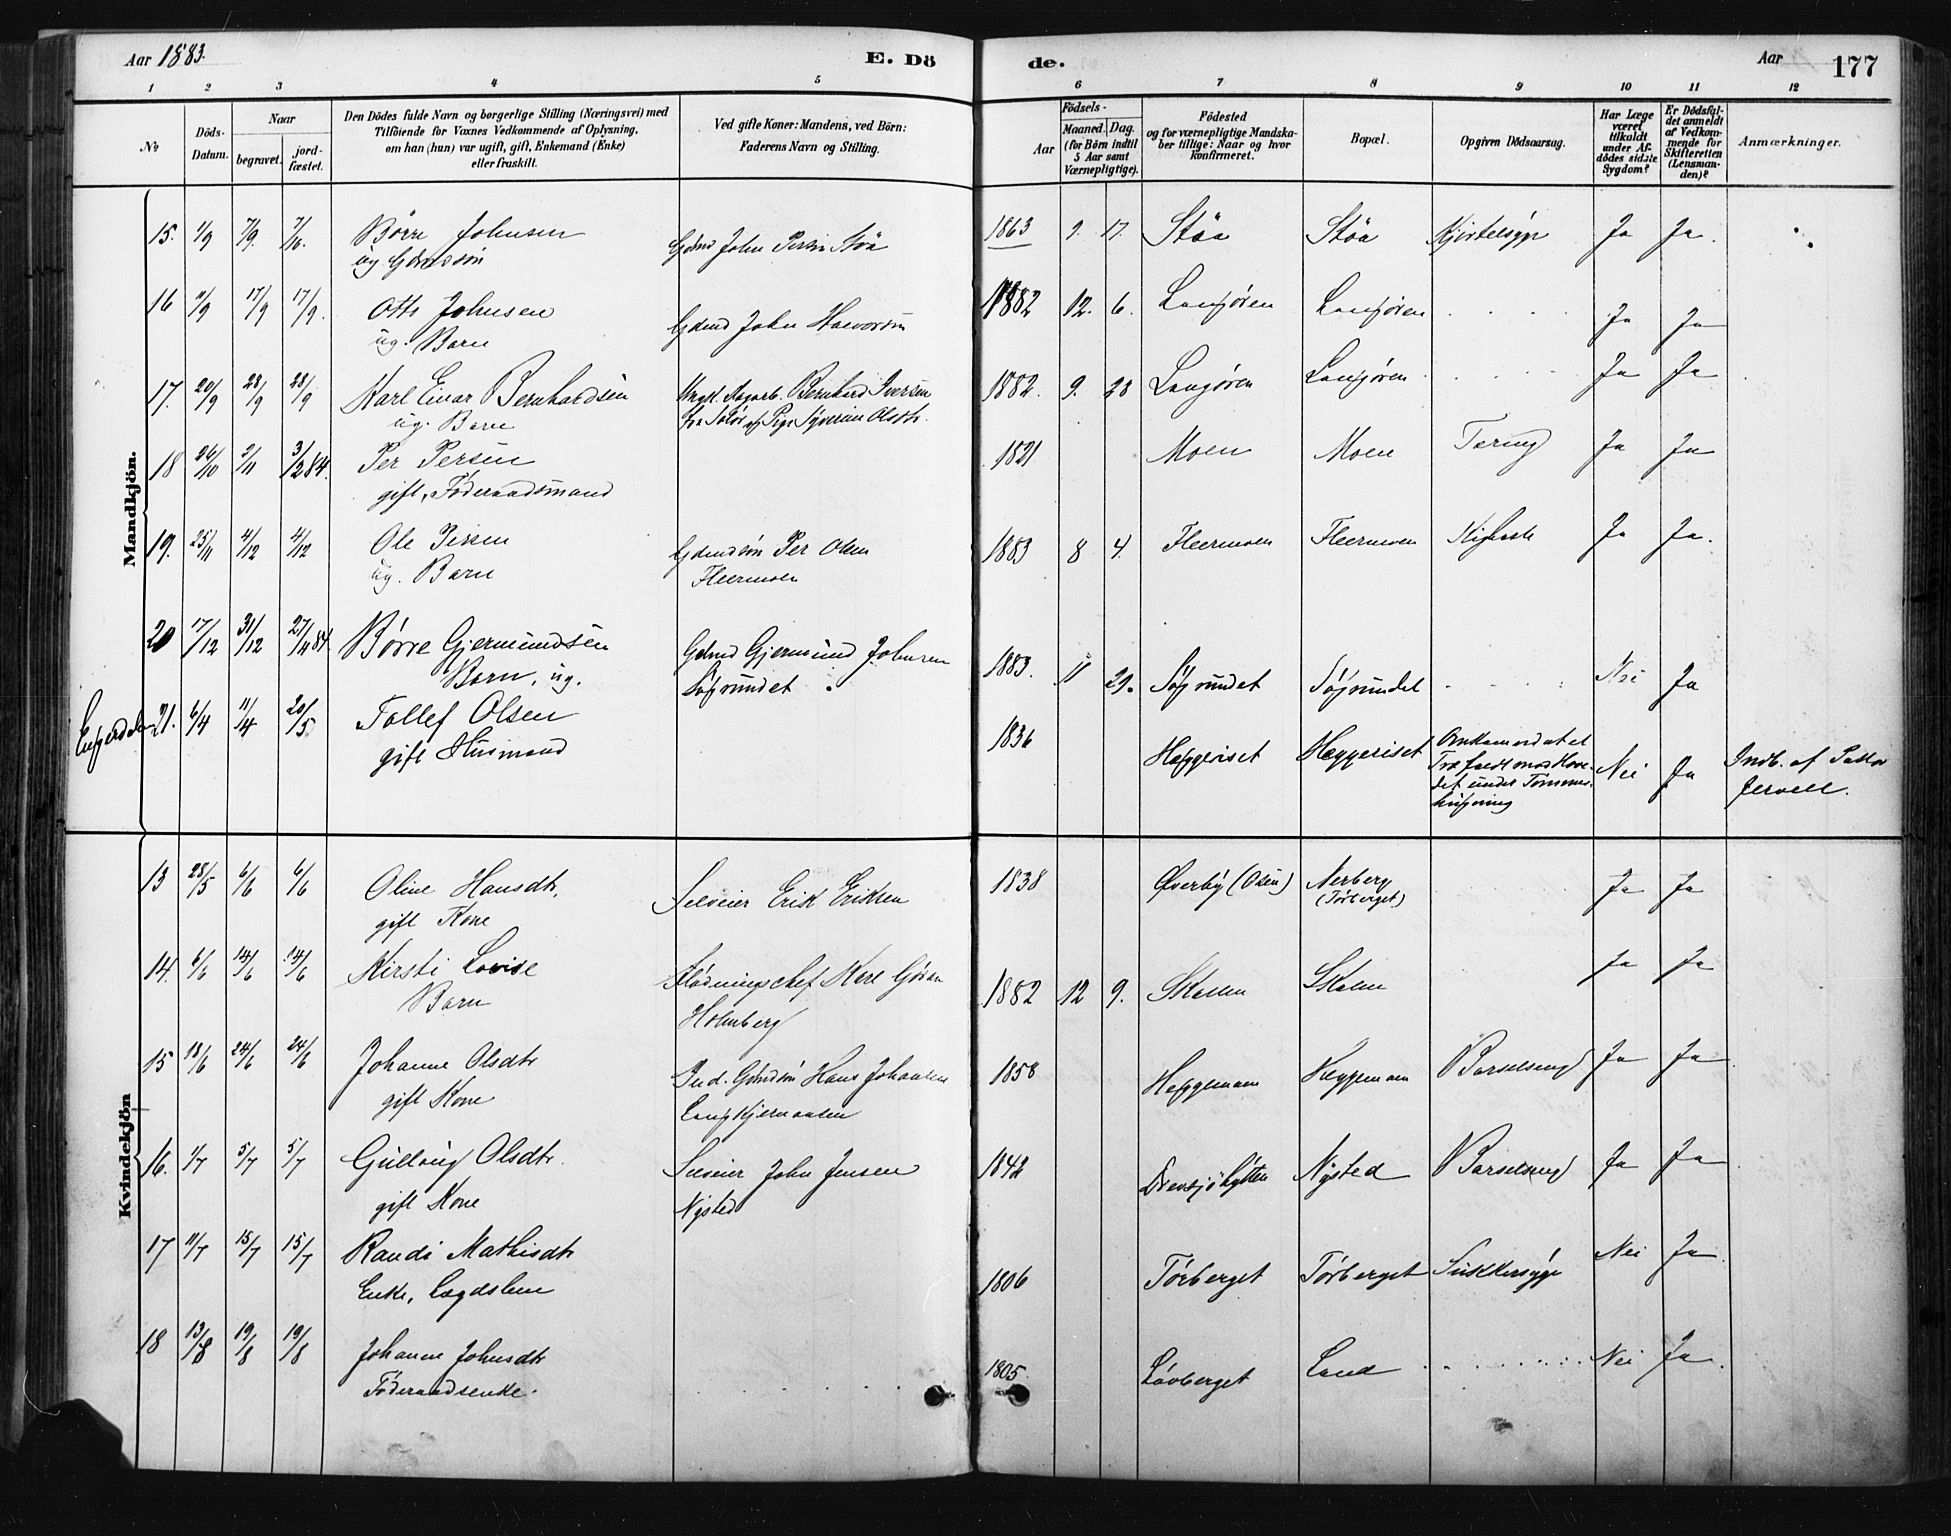 Aar 1883.
E. Dö
de.
Aar
177
1 2 3 4 5 6 7 8 9 10 11 12
No
Döds-Datum.
Naar
begravet.
jord-fæstet.
Den Dödes fulde Navn og borgerlige Stilling (Næringsvei) med
Tilföiende for Voxnes Vedkommende af Oplysning,
om han (hun) var ugift, gift, Enkemand (Enke)
eller fraskilt.
Ved gifte Koner: Mandens, ved Börn:
Faderens Navn og Stilling.
Födsels-
Aar
Maaned. Dag.
(for Börn indtil
5 Aar samt
Værnepligtige).
Födested
og for værnepligtige Mandska-
ber tillige: Naar og hvor
konfirmeret.
Bopæl.
Opgiven Dödsaarsag.
Har Læge
været
tilkaldt
under Af-
dödes sidste
Sygdom?
Er Dödsfal-
det anmeldt
af Vedkom-
mende for
Skifteretten
(Lensman-
den)?
Anmærkninger.
Mandkjön.
15. 1/9 7/9. 7/10. Börre Johnsen Gdmd John Persen Støa 1863 9. 17. Støa Støa Kjertelsyge Ja Ja.
ug Gdmdssøn
16 11/9 17/9 17/9. Otto Johnsen Gdmd John Halvorsen 1882 12. 6. Langøren Langøren Ja Ja
ug. Barn
17. 20/9 28/9 28/9 Karl Einar Bernhardsen Ungk. Dagarb. Bernhard Iversen 1882. 9. 28 Langøren Langøren Ja Ja
ug. Barn fra Solør og Pige Syverine Olsdtr.
18 26/10 2/11 3/2 84. Per Persen 1821 Moen Moen Tæring Ja Ja
gift, Föderaadsmand
19. 25/11 4/12 4/12 Ole Persen Gdmdsøn Per Olsen 1883 8 4. Fleermoen Fleermoen Kighoste Ja Ja.
ug. Barn Fleermoen
20 17/12 31/12 27/4 84. Börre Gjermundsen Gdmd Gjermund Johnsen 1883. 11 29. Søgrundet Søgrundet Nei Ja
Barn, ug. Søgrundet
Engerdalen 21. 6/4 11/4 20/5 Tollef Olsen 1836 Heggeriset Heggeriset Omkom ved at et Nei Ja Indb. af Pastor
gift Husmand Træ faldt mod Hove- Jervell.
det under Tømmer-
hugning
Kvindekjön
13 28/5 6/6 6/6 Oline Hansdtr. Selveier Erik Eriksen 1838 Øverby (Osen) Nerberg Ja Ja
gift Kone (Tørberget)
14. 6/6 14/6 14/6 Kirsti Lovise Flødningschef Karl Gøran 1882 12 9. Skallen Skalen Ja Ja
Barn Holmberg
15 18/6 24/6 24/6 Johanne Olsdtr Ind. Gdmdsøn Hans Johansen 1858 Heggemoen Heggemoen Barselseng Ja Ja
gift Kone
16. 1/7 5/7 5/7 Gullaug Olsdtr. Selveier John Jensen 1842 Drevsjøhytten Nysted Barselseng Ja Ja
gift Kone Nysted
17 11/7 15/7 15/7 Randi Mathisdtr 1806 Tørberget Tørberget Sukkersyge Nei Ja
Enke, Lægdslem
18 13/8 19/8 19/8 Johanne Johnsdtr 1805. Løvberget Land Nei Ja
Föderaadsenke.